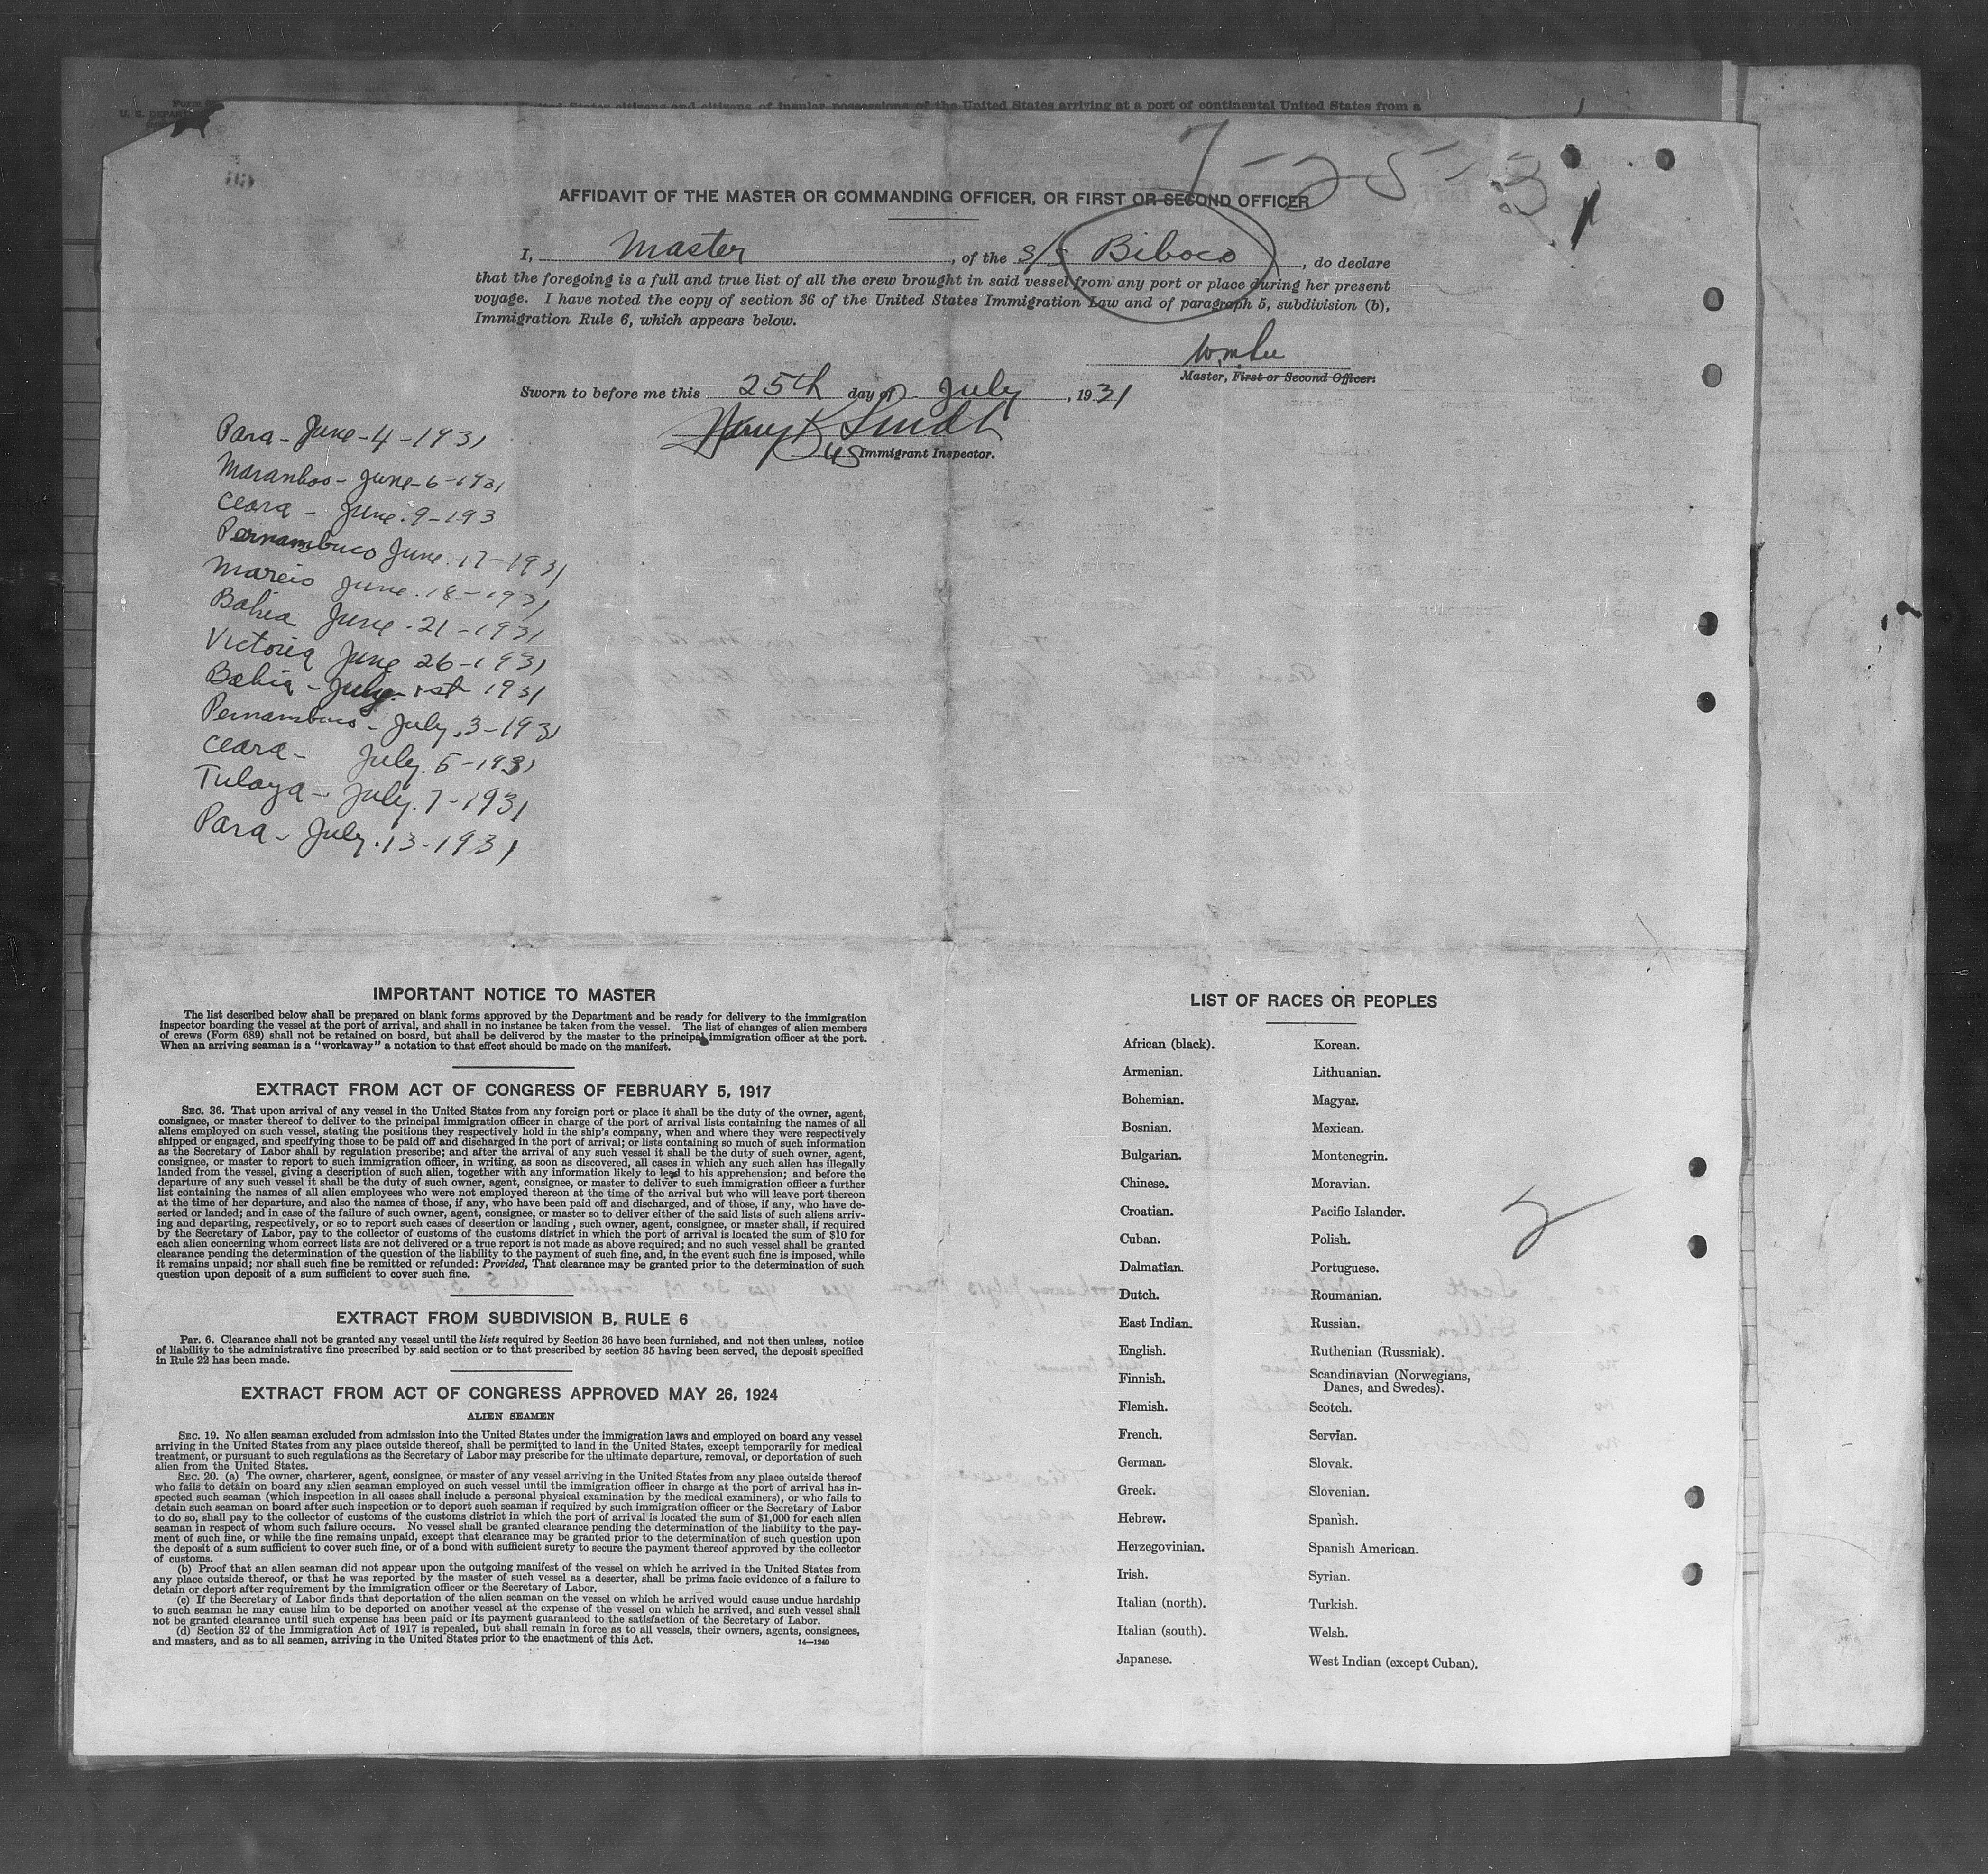 United States citizens and citizens of insular possessions of the United States arriving at a port of continental United States from a
7-25-31
AFFIDAVIT OF THE MASTER OR COMMANDING OFFICER, OR FIRST OR SECOND OFFICER
I, Master, of the S/S Biboco, do declare
that the foregoing is a full and true list of all the crew brought in said vessel from any port or place during her present
voyage. I have noted the copy of section 36 of the United States Immigration Law and of paragraph 5, subdivision (b),
Immigration Rule 6, which appears below.
Master, First or Second Officer.
Sworn to before me this 25th day of July, 1931
US Immigrant Inspector.
Para - June - 4 - 1931
Maranhoo - June - 6 - 1931
Ceara - June . 9 - 193
Pernambuco June . 17 - 1931
Mareio June . 18 - 1931
Bahia June . 21 - 1931
Victoria June 26 - 1931
Bahia - July - 1st 1931
Pernambuco - July . 3 - 1931
Ceara - July . 5 - 1931
Tulaya - July . 7 - 1931
Para - July . 13 - 1931
IMPORTANT NOTICE TO MASTER
The list described below shall be prepared on blank forms approved by the Department and be ready for delivery to the immigration
inspector boarding the vessel at the port of arrival, and shall in no instance be taken from the vessel. The list of changes of alien members
of crews (Form 689) shall not be retained on board, but shall be delivered by the master to the principal immigration officer at the port.
When an arriving seaman is a "workaway" a notation to that effect should be made on the manifest.
EXTRACT FROM ACT OF CONGRESS OF FEBRUARY 5, 1917
SEC. 36. That upon arrival of any vessel in the United States from any foreign port or place it shall be the duty of the owner, agent,
consignee, or master thereof to deliver to the principal immigration officer in charge of the port of arrival lists containing the names of all
aliens employed on such vessel, stating the positions they respectively hold in the ship's company, when and where they were respectively
shipped or engaged, and specifying those to be paid off and discharged in the port of arrival; or lists containing so much of such information
as the Secretary of Labor shall by regulation prescribe; and after the arrival of any such vessel it shall be the duty of such owner, agent,
consignee, or master to report to such immigration officer, in writing, as soon as discovered, all cases in which any such alien has illegally
landed from the vessel, giving a description of such alien, together with any information likely to lead to his apprehension; and before the
departure of any such vessel it shall be the duty of such owner, agent, consignee, or master to deliver to such immigration officer a further
list containing the names of all alien employees who were not employed thereon at the time of the arrival but who will leave port thereon
at the time of her departure, and also the names of those, if any, who have been paid off and discharged, and of those, if any, who have de-
serted or landed; and in case of the failure of such owner, agent, consignee, or master so to deliver either of the said lists of such aliens arriv-
ing and departing, respectively, or so to report such cases of desertion or landing, such owner, agent, consignee, or master shall, if required
by the Secretary of Labor, pay to the collector of customs of the customs district in which the port of arrival is located the sum of $10 for
each alien concerning whom correct lists are not delivered or a true report is not made as above required; and no such vessel shall be granted
clearance pending the determination of the question of the liability to the payment of such fine, and, in the event such fine is imposed, while
it remains unpaid; nor shall such fine be remitted or refunded: Provided, That clearance may be granted prior to the determination of such
question upon deposit of a sum sufficient to cover such fine.
EXTRACT FROM SUBDIVISION B, RULE 6
Par. 6. Clearance shall not be granted any vessel until the lists required by Section 36 have been furnished, and not then unless, notice
of liability to the administrative fine prescribed by said section or to that prescribed by section 35 having been served, the deposit specified
in Rule 22 has been made.
EXTRACT FROM ACT OF CONGRESS APPROVED MAY 26, 1924
ALIEN SEAMEN
SEC. 19. No alien seaman excluded from admission into the United States under the immigration laws and employed on board any vessel
arriving in the United States from any place outside thereof, shall be permitted to land in the United States, except temporarily for medical
treatment, or pursuant to such regulations as the Secretary of Labor may prescribe for the ultimate departure, removal, or deportation of such
alien from the United States.
SEC. 20. (a) The owner, charterer, agent, consignee, or master of any vessel arriving in the United States from any place outside thereof
who fails to detain on board any alien seaman employed on such vessel until the immigration officer in charge at the port of arrival has in-
spected such seaman (which inspection in all cases shall include a personal physical examination by the medical examiners), or who fails to
detain such seaman on board after such inspection or to deport such seaman if required by such immigration officer or the Secretary of Labor
to do so, shall pay to the collector of customs of the customs district in which the port of arrival is located the sum of $1,000 for each alien
seaman in respect of whom such failure occurs. No vessel shall be granted clearance pending the determination of the liability to the pay-
ment of such fine, or while the fine remains unpaid, except that clearance may be granted prior to the determination of such question upon
the deposit of a sum sufficient to cover such fine, or of a bond with sufficient surety to secure the payment thereof approved by the collector
of customs.
(b) Proof that an alien seaman did not appear upon the outgoing manifest of the vessel on which he arrived in the United States from
any place outside thereof, or that he was reported by the master of such vessel as a deserter, shall be prima facie evidence of a failure to
detain or deport after requirement by the immigration officer or the Secretary of Labor.
(c) If the Secretary of Labor finds that deportation of the alien seaman on the vessel on which he arrived would cause undue hardship
to such seaman he may cause him to be deported on another vessel at the expense of the vessel on which he arrived, and such vessel shall
not be granted clearance until such expense has been paid or its payment guaranteed to the satisfaction of the Secretary of Labor.
(d) Section 32 of the Immigration Act of 1917 is repealed, but shall remain in force as to all vessels, their owners, agents, consignees,
and masters, and as to all seamen, arriving in the United States prior to the enactment of this Act.
14—1240
LIST OF RACES OR PEOPLES
African (black). Korean.
Armenian. Lithuanian.
Bohemian. Magyar.
Bosnian. Mexican.
Bulgarian. Montenegrin.
Chinese. Moravian.
Croatian. Pacific Islander.
Cuban. Polish.
Dalmatian. Portuguese.
Dutch. Roumanian.
East Indian. Russian.
English. Ruthenian (Russniak).
Finnish. Scandinavian (Norwegians,
Danes, and Swedes).
Flemish. Scotch.
French. Servian.
German. Slovak.
Greek. Slovenian.
Hebrew. Spanish.
Herzegovinian. Spanish American.
Irish. Syrian.
Italian (north). Turkish.
Italian (south). Welsh.
Japanese. West Indian (except Cuban).
2